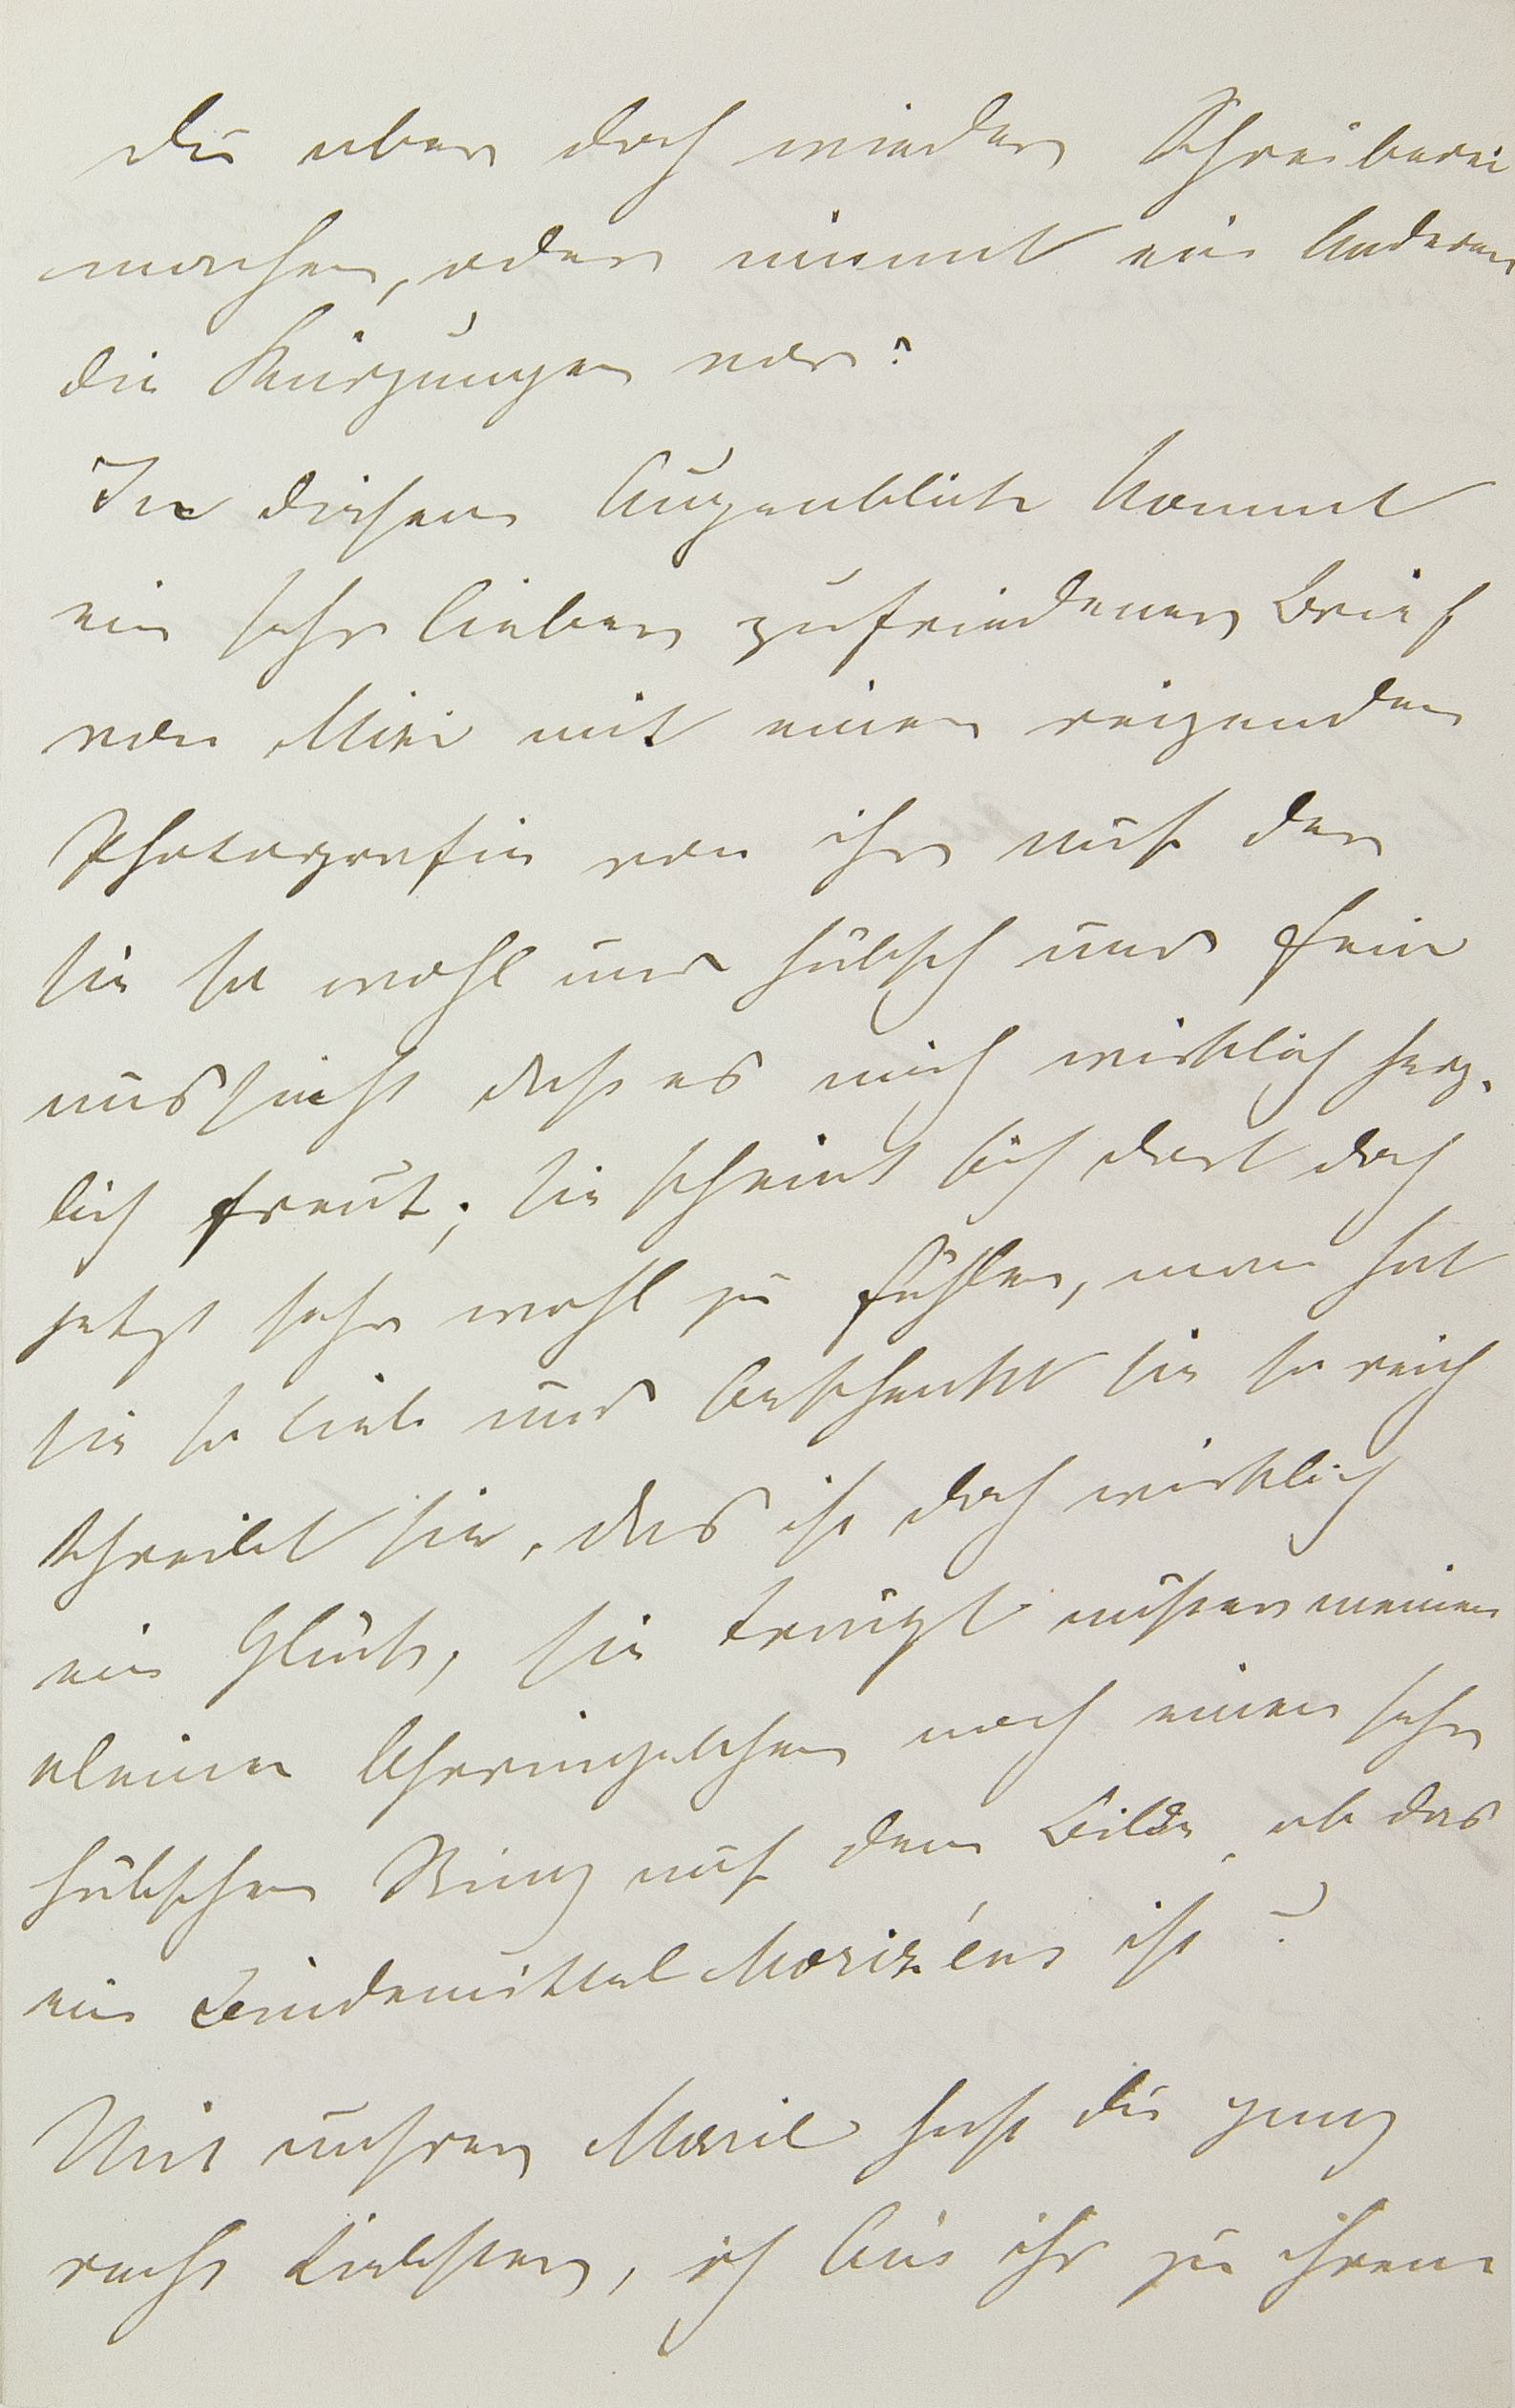 du aber doch wieder Schreiberei
machen, oder nimmt ein Anderer
die Kürzungen vor?
In diesem Augenblick kommt
ein sehr lieber zufriedener Brief
von Mizi mit einer reizenden
Photografie von ihr auf der
sie so wohl und hübsch und fein
aussieht daß es mich wirklich herz-
lich freut; sie scheint sich dort doch
jetzt sehr wohl zu fühlen, man hat
sie so lieb und beschenkt sie so reich
schreibt sie, das ist doch wirklich
ein Glück, sie trägt außer meinen
kleinen Ohrringelchen noch einen sehr
hübschen Ring auf dem Bilde, ob das
ein ist?
Mit unserer Marie hast du ganz
recht Liebster, ich bin ihr zu ihrem